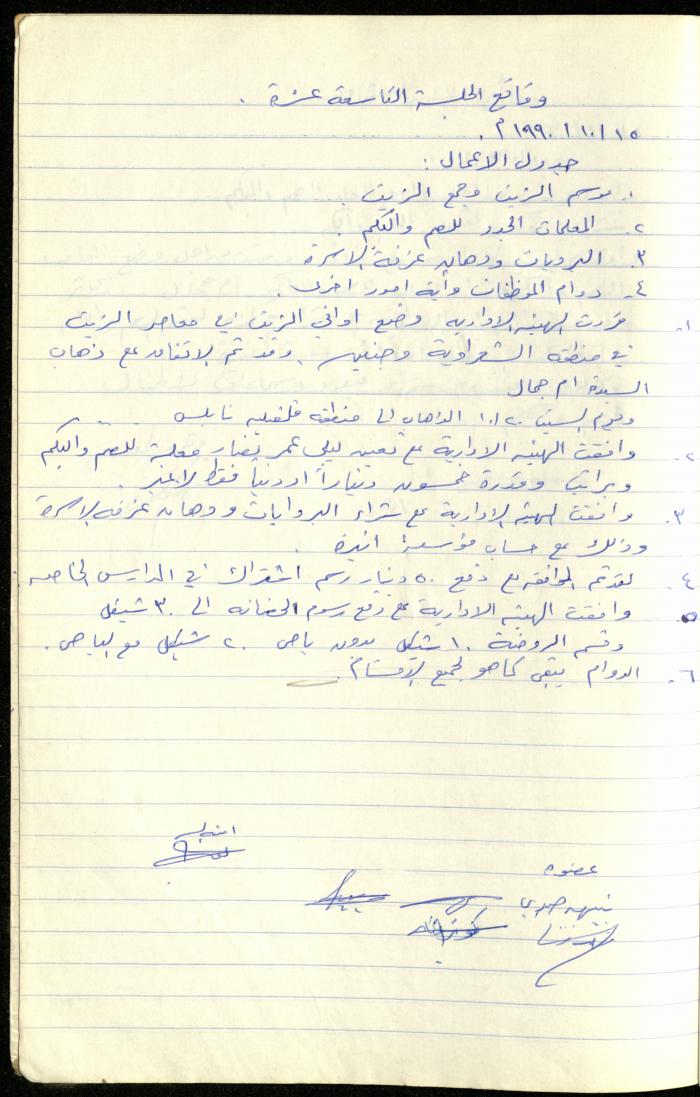 وقائع الجلسة التاسعة عشرة .
١٥ / ١٠ / ١٩٩٠م .
جدول الاعمال :
١. موسم الزيت وجمع الزيت .
٢. المعلمات الجدد للصم والبكم
٣. البرويات ودهان غرفة الاسرة
٤- دوام الموظفات وأية امور اخرى .
١- قررت الهيئة الادارية وضع اواني الزيت في معاصر الزيت
في منطقة الشعراوية وجنين . وقد تم الاتفاق مع ذهاب
السيدة ام جمال
ويوم السبت ٢٠/١٠ الذهاب الى منطقة قلقيلية نابلس
٢- وافقت الهيئة الادارية مع تعيين ليلى عمر نصار معلمة للصم والبكم
وبراتب وقدره خمسون ديناراً اردنياً فقط لاغير .
٣. وافقت الهيئة الادارية مع شراء البروايات ودهان غرفة الاسرة
وذلك مع حساب مؤسسة انيرة .
٤. لقد تم الموافقة مع دفع ٥٠ دينار رسم اشتراك في المدارس الخاصة
٥ وافقت الهيئة الادارية مع رفع رسوم الحضانه الى ٣٠ شيقل
وقسم الروضة ١٠ شيكل بدون باص ٢٠ شيكل مع الباص .
٦- الدوام يبقى كما هو لجميع الاقسام .
عضوه